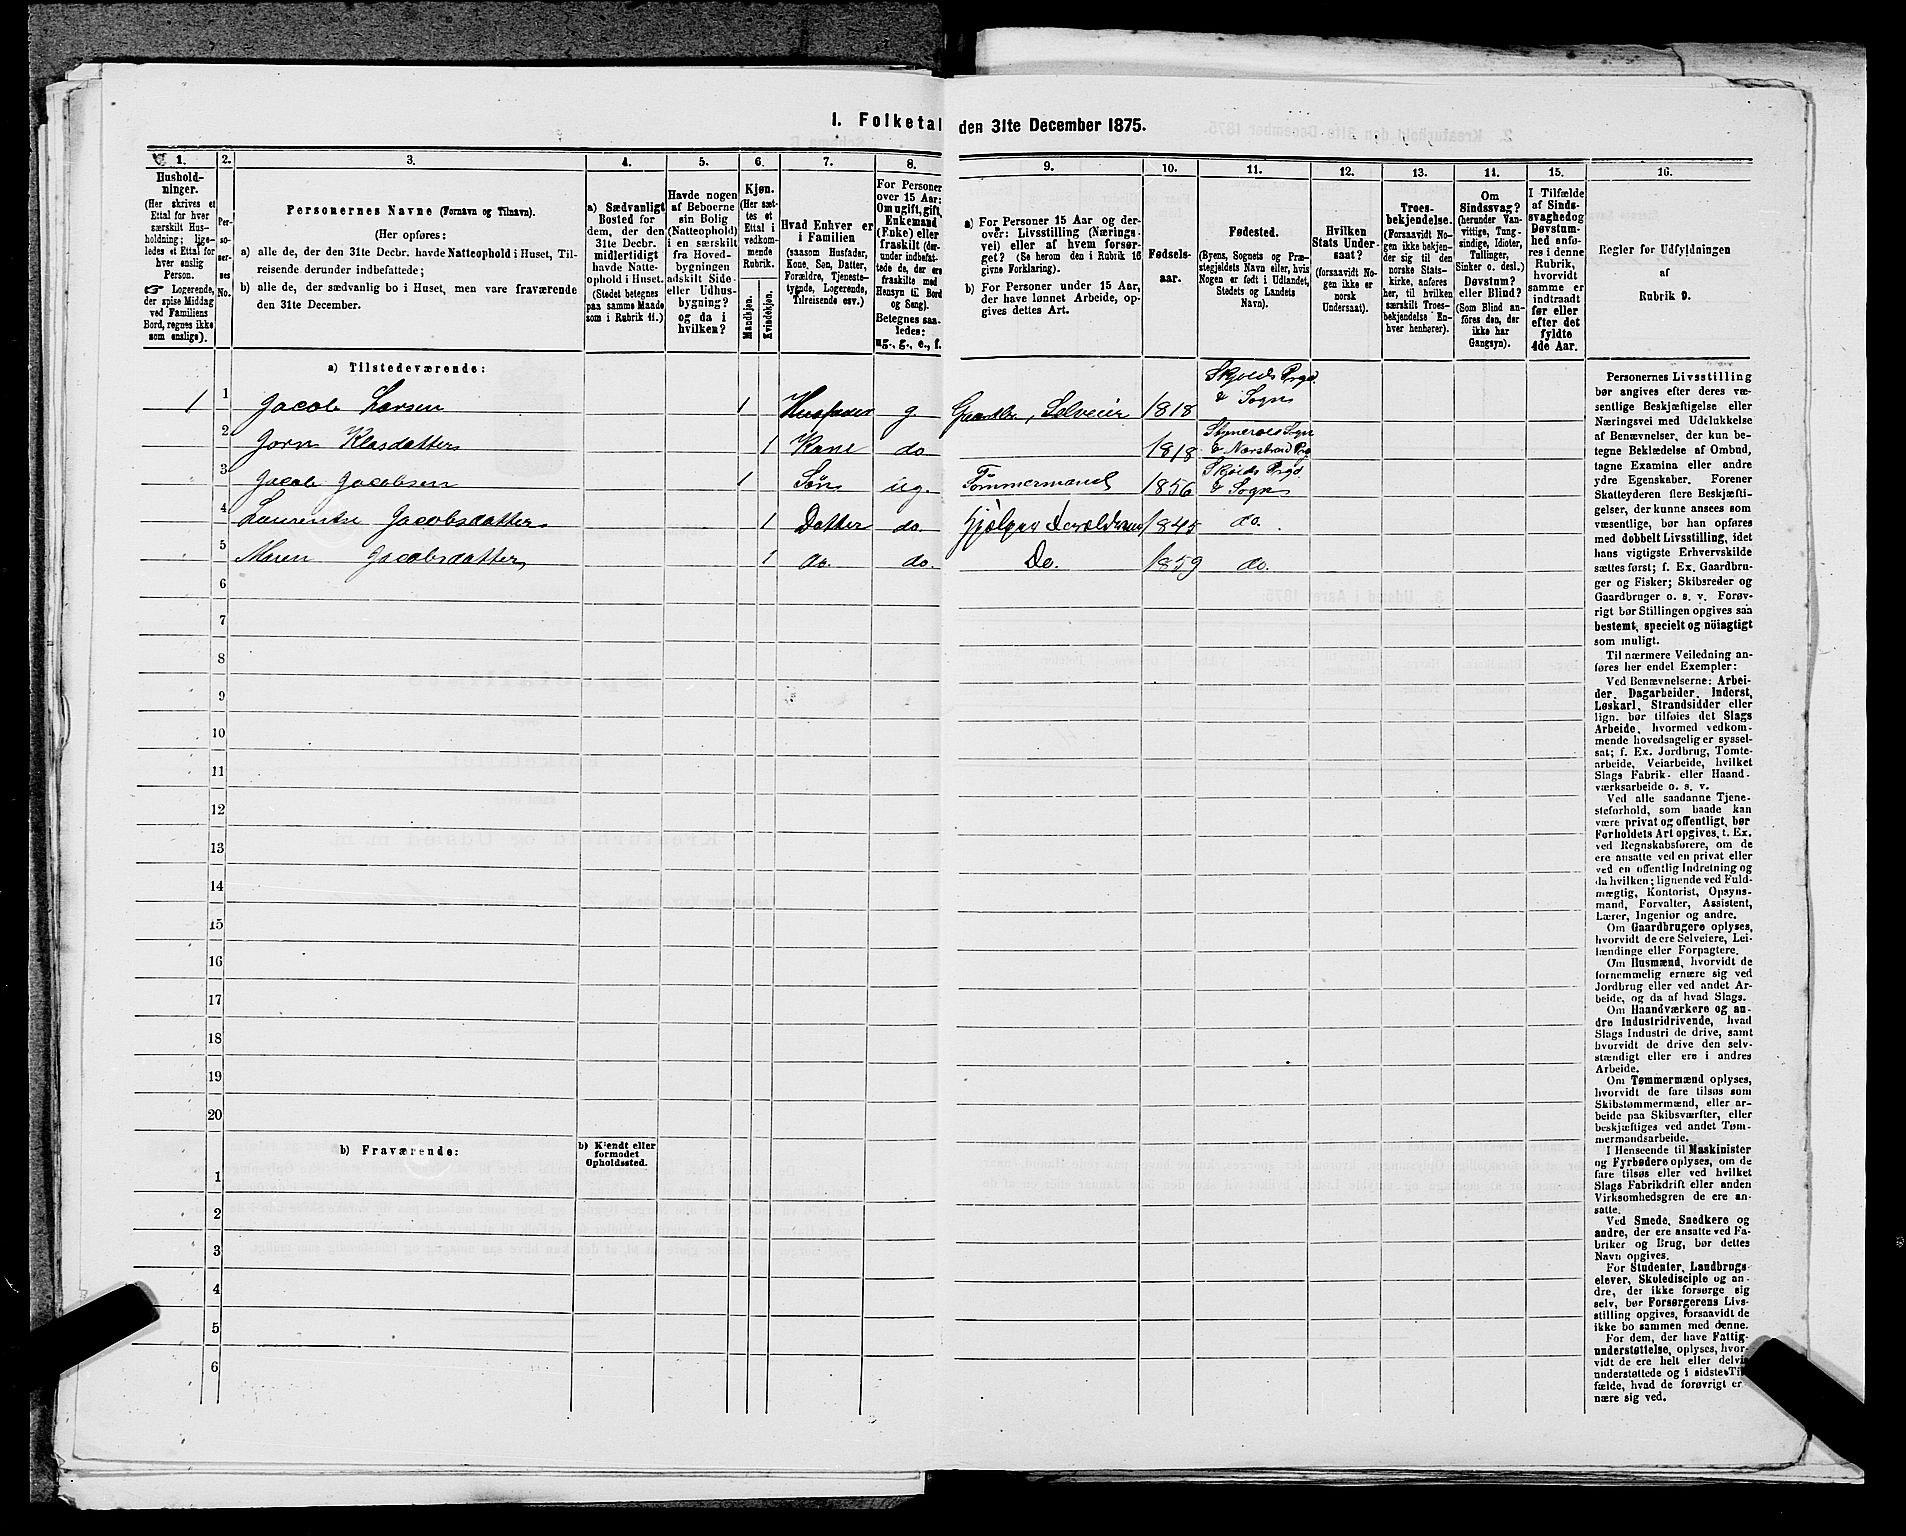 I. Folketal den 31te December 1875.
1. 2. 3. 4. 5. 6. 7. 8. 9. 10. 11. 12. 13. 14. 15. 16.
Hushold-
ninger.
(Her skrives et
Ettal for hver
særskilt Hus-
holdning; lige-
ledes et Ettal for
hver enslig
Person.
☞ Logerende,
der spise Middag
ved Familiens
Bord, regnes ikke
som enslige).
Per-
so-
ner-
nes
No.
Personernes Navne (Fornavn og Tilnavn).
(Her opføres:
a) alle de, der den 31te Decbr. havde Natteophold i Huset, Til-
reisende derunder indbefattede;
b) alle de, der sædvanlig bo i Huset, men vare fraværende
den 31te December.
a) Sædvanligt
Bosted for
dem, der den
31te Decbr.
midlertidigt
havde Natte-
ophold i Huset.
(Stedet betegnes
paa samme Maade
som i Rubrik 11.)
Havde nogen
af Beboerne
sin Bolig
(Natteophold)
i en særskilt
fra Hoved-
bygningen
adskilt Side-
eller Udhus-
bygning?
og da i
hvilken?
Kjøn.
(Her sæt-
tes et
Ettal i
vedkom-
mende
Rubrik.
Mandkjøn.
Kvindekjøn.
Hvad Enhver er
i Familien
(saasom Husfader,
Kone, Søn, Datter,
Forældre, Tjeneste-
tyende, Logerende,
Tilreisende osv.)
For Personer
over 15 Aar:
Om ugift, gift,
Enkemand
(Enke) eller
fraskilt (der-
under indbefat-
tede de, der ere
fraskilte med
Hensyn til Bord
og Seng).
Betegnes saa-
ledes:
ug., g., e., f.
a) For Personer 15 Aar og der-
over: Livsstilling (Nærings-
vei) eller af hvem forsør-
get? (Se herom den i Rubrik 16
givne Forklaring).
b) For Personer under 15 Aar,
der have lønnet Arbeide, op-
gives dettes Art.
Fødsels-
aar.
Fødested.
(Byens, Sognets og Præ-
stegjeldets Navn eller, hvis
Nogen er født i Udlandet,
Stedets og Landets
Navn).
Hvilken
Stats Under-
saat?
(forsaavidt No-
gen ikke er
norsk
Undersaat).
Troes-
bekjendelse.
(Forsaavidt No-
gen ikke bekjen-
der sig til den
norske Stats-
kirke, anføres
her, til hvilken
særskilt Troes-
bekjendelse En-
hver henhører).
Om
Sindssvag?
(herunder Van-
vittige, Tung-
sindige, Idioter,
Tullinger,
Sinker o. desl.)
Døvstum?
eller Blind?
(Som Blind an-
føres den, der
ikke har
Gangsyn).
I Tilfælde
af Sinds-
svaghed og
Døvstum-
hed anfø-
res i denne
Rubrik,
hvorvidt
samme er
indtraadt
før eller
efter det
fyldte
4de Aar.
Regler for Udfyldningen
af
Rubrik 9.
a) Tilstedeværende:
1 1 Jacob Larsen 1 Husfader g. Gaardbr, Selveier 1818 Skjolds Prgd. & Sogn
2 Jorn Klasdatter 1 Kone do 1818
3 Jacob Jacobsen 1 Søn ug. Tømmermand 1856 Skjolds Prgd. & Sogn
4 Laurentse Jacobsdatter 1 Datter do. hjælper 1845 do.
5 Maren Jacobsdatter 1 do. do. Do. 1859 do.
6
7
8
9
10
11
12
13
14
15
16
17
18
19
20
b) Fraværende: b) Kjendt eller
formodet
Opholdssted.
1
2
3
4
5
6
Personernes Livsstilling
bør angives efter deres væ-
sentlige Beskjæftigelse eller
Næringsvei med Udelukkelse
af Benævnelser, der kun be-
tegne Beklædelse af Ombud,
tagne Examina eller andre
ydre Egenskaber. Forener
Skatteyderen flere Beskjæfti-
gelser, der kunne ansees som
væsentlige, bør han opføres
med dobbelt Livsstilling, idet
hans vigtigste Erhvervskilde
sættes først; f. Ex. Gaardbru-
ger og Fisker; Skibsreder og
Gaardbruger o. s. v. Forøv-
rigt bør Stillingen opgives saa
bestemt, specielt og nöiagtigt
som muligt.
Til nærmere Veiledning an-
føres her endel Exempler:
Ved Benævnelserne: Arbei-
der, Dagarbeider, Inderst,
Løskarl, Strandsidder eller
lign. bør tilføies det Slags
Arbeide, hvormed vedkom-
mende hovedsagelig er syssel-
sat; f. Ex. Jordbrug, Tomte-
arbeide, Veiarbeide, hvilket
Slags Fabrik- eller Haand-
værksarbeide o. s. v.
Ved alle saadanne Tjene-
steforhold, som baade kan
være privat og offentligt, bør
Forholdets Art opgives, t. Ex.
ved Regnskabsførere, om de
ere ansatte ved en privat eller
ved en offentlig Indretning og
da hvilken; lignende ved Fuld-
mægtig, Kontorist, Opsyns-
mand, Forvalter, Assistent,
Lærer, Ingeniør og andre.
Om Gaardbrugere oplyses,
hvorvidt de ere Selveiere, Lei-
lændinge eller Forpagtere.
Om Husmænd, hvorvidt de
fornemmelig ernære sig ved
Jordbrug eller ved andet Ar-
beide, og da af hvad Slags.
Om Haandværkere og an-
dre Industridrivende, hvad
Slags Industri de drive, samt
hvorvidt de drive den selv-
stændigt eller ere i andres
Arbeide.
Om Tømmermænd oplyses,
hvorvidt de fare tilsøs som
Skibstømmermænd, eller ar-
beide paa Skibsværfter, eller
beskjæftiges ved andet Tøm-
mermandsarbeide.
I Henseende til Maskinister
og Fyrbødere oplyses, om de
fare tilsøs eller ved hvilket
Slags Fabrikdrift eller anden
Virksomhedsgren de ere an-
satte.
Ved Smede, Snedkere og
andre, der ere ansatte ved Fa-
briker og Brug, bør dettes
Navn opgives.
For Studenter, Landbrugs-
elever, Skoledisciple og an-
dre, der ikke forsørge sig
selv, bør Forsørgerens Livs-
stilling opgives, forsaavidt de
ikke bo sammen med denne.
For dem, der have Fattig-
understøttelse, oplyses, hvor-
vidt de ere helt eller delvis
understøttede og i sidste Til-
fælde, hvad de forøvrigt er-
nære sig ved.